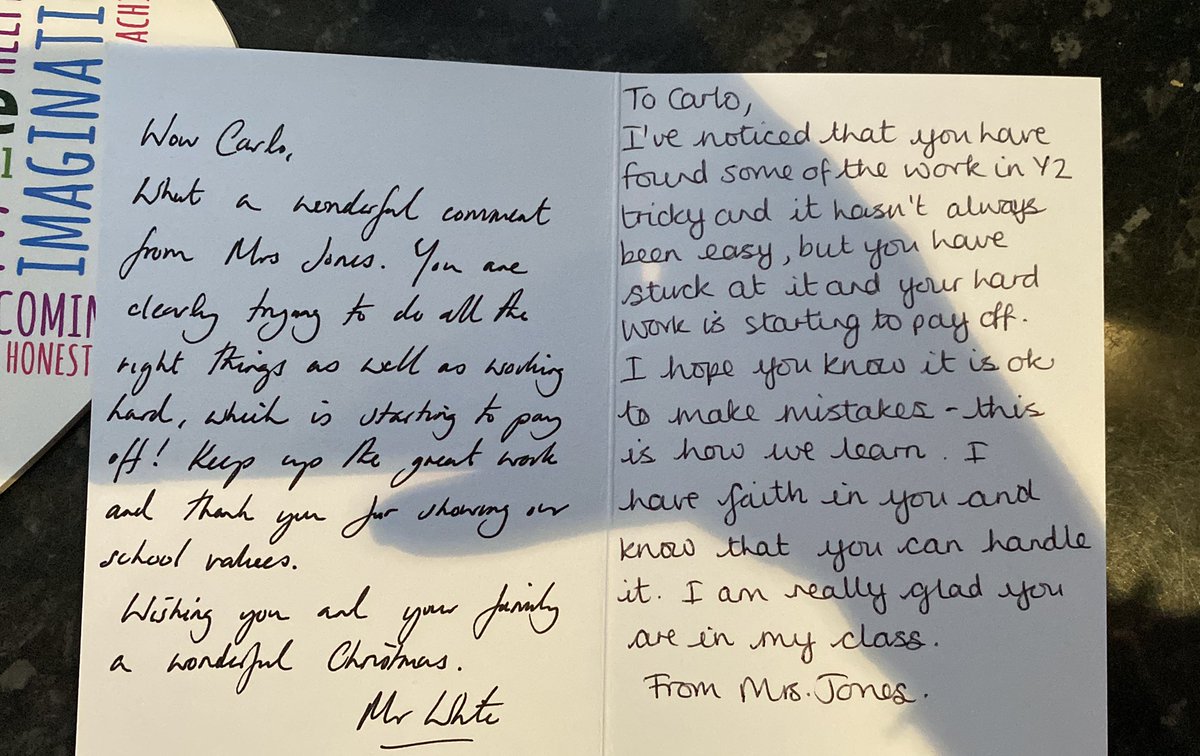 HELP
IMAGINATI
ACHI
COMIN
HONEST
Wow Carlo,
What a wonderful comment
from Mrs Jones. You are
clearly trying to do all the
right things as well as working
hard, which is starting to pay
off! Keep up the great work
and thank you for showing our
school values.
Wishing you and your family
a wonderful Christmas.
Mr White
To Carlo,
I've noticed that you have
found some of the work in Y2
tricky and it hasn't always
been easy, but you have
stuck at it and your hard
work is starting to pay off.
I hope you know it is ok
to make mistakes - this
is how we learn. I
have faith in you and
know that you can handle
it. I am really glad you
are in my class.
From Mrs. Jones.